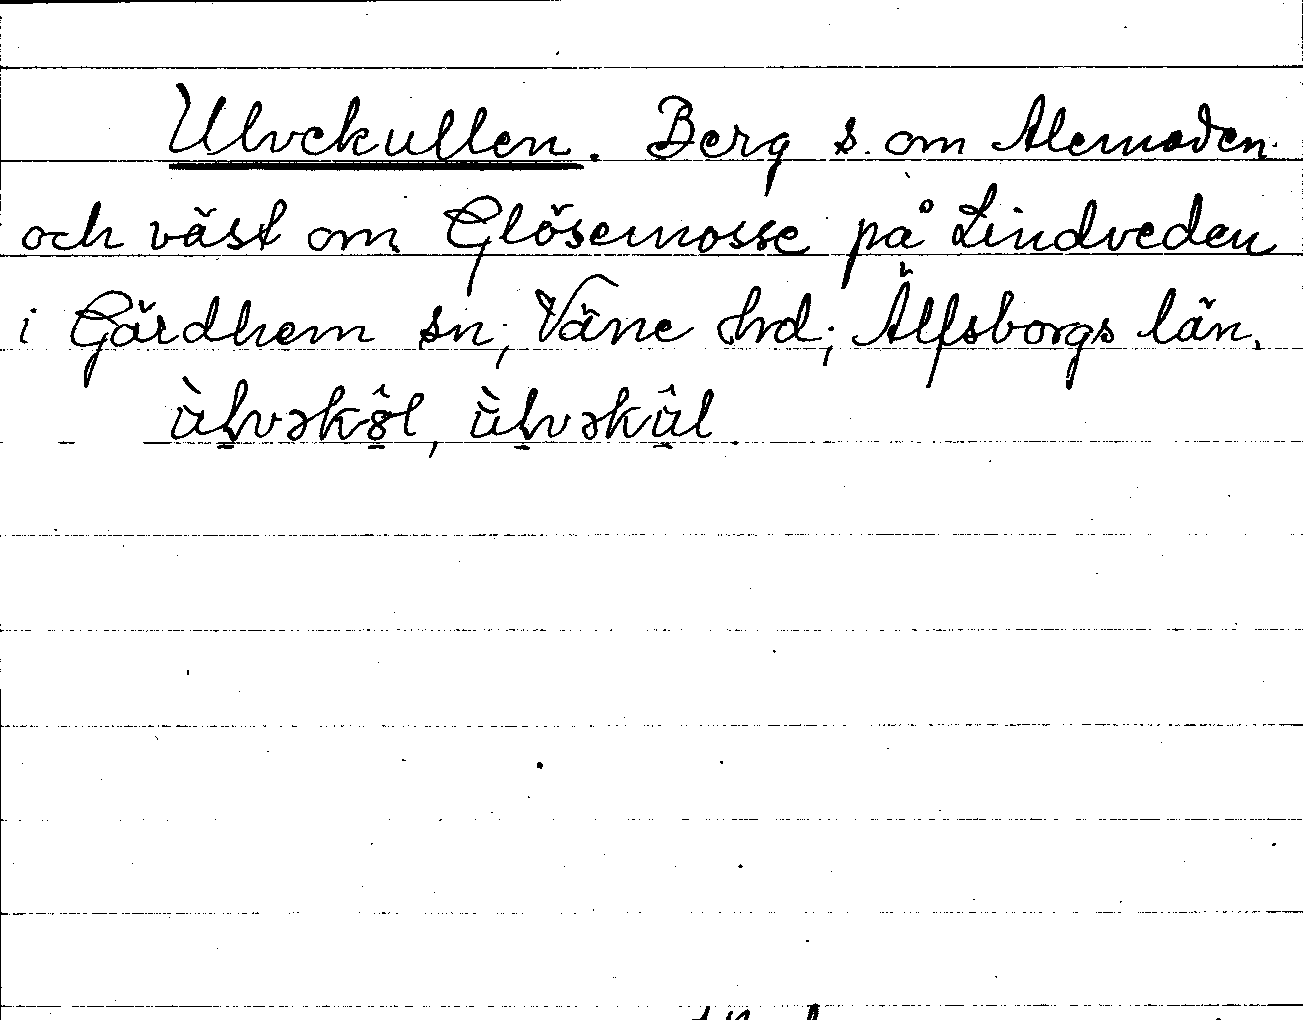 Ulvekullen. Berg s. om Alemaden
och väst om Glösemosse på Lindveden
i Gärdhem sn, Väne hd, Älfsborgs län.